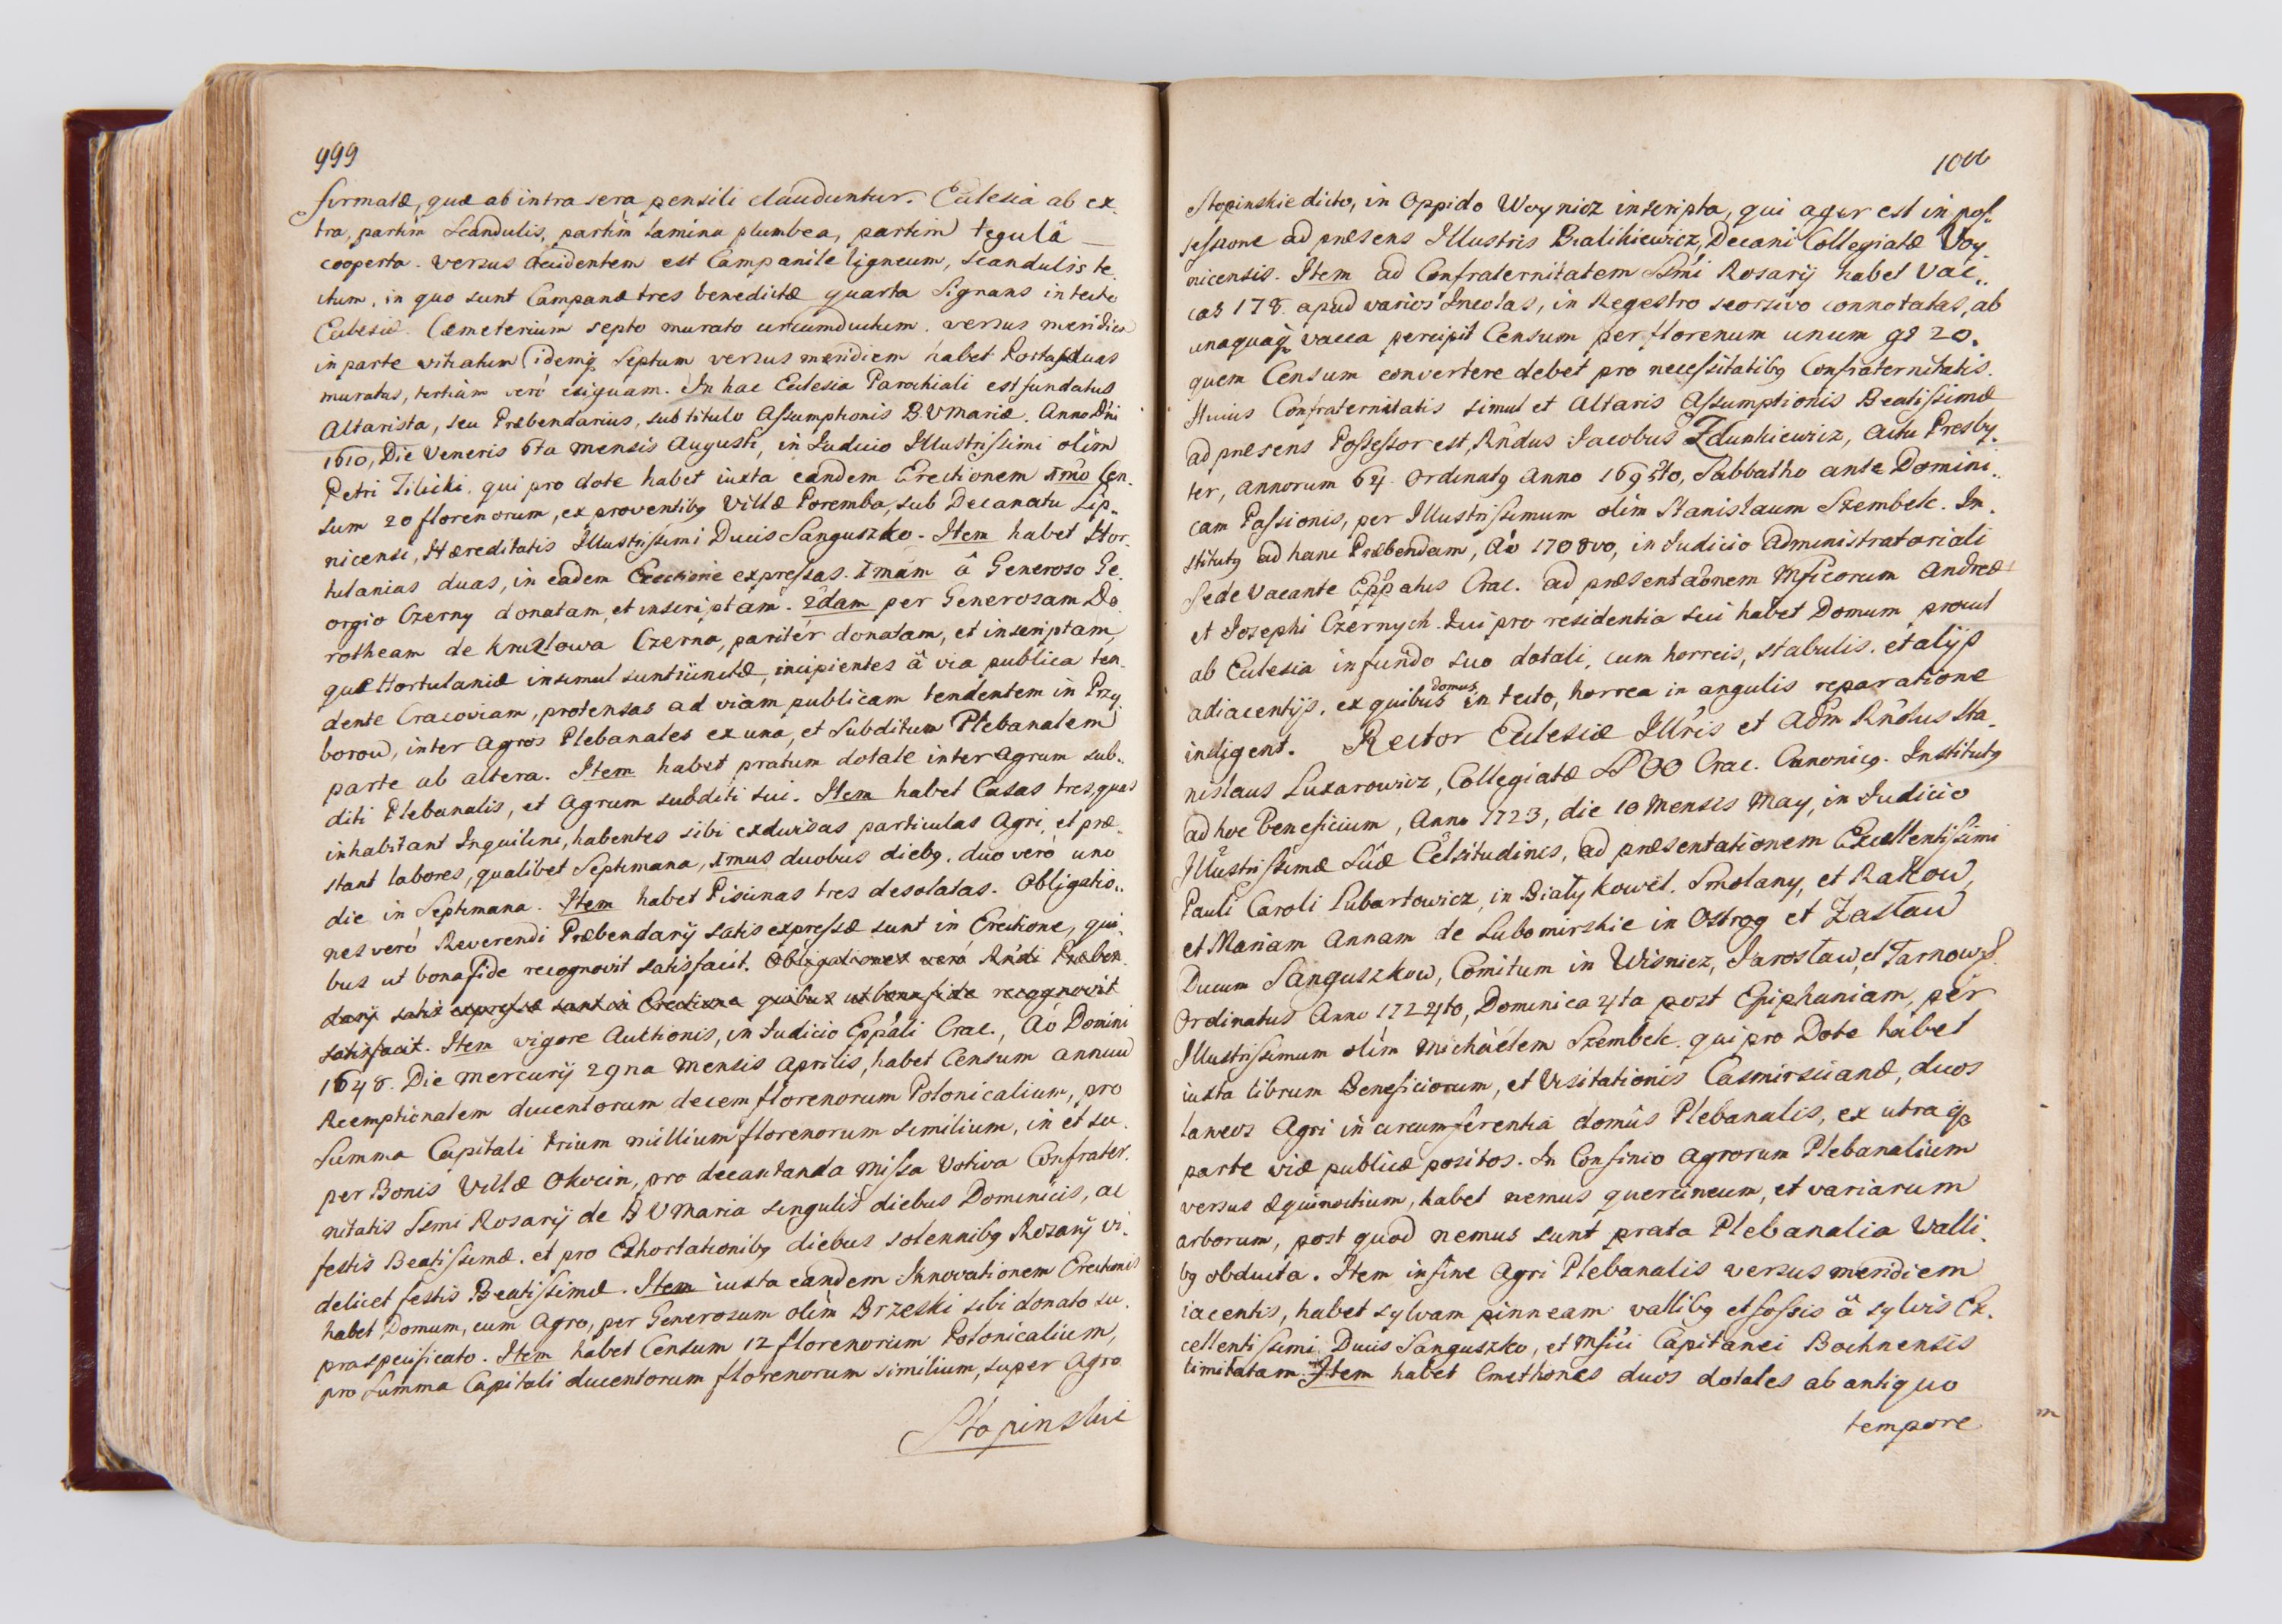 999
firmatæ, quæ ab intra sera pensili clauduntur. Ecclesia ab ex-
tra, partim Scandulis, partim lamina plumbea, partim tegulâ
cooperta. Versus Occidentem est Campanile ligneum, scandulis te-
ctum, in quo sunt Campanæ tres benedictæ quarta Signans in tecto
Ecclesiæ. Cæmeterium septo murato circumductum. versus meridiem
in parte vitiatum idemq3 Septum versus meridiem habet Portas duas
muratas, tertiam verò exiguam. In hac Ecclesia Parochiali est fundatus
Altarista, seu Præbendarius, sub titulo Assumptionis B. V Mariæ. Anno Dni
1610, Die Veneris 6ta Mensis Augusti, in Judicio Illustrissimi olim
Petri Tilicki, qui pro dote habet iuxta eandem Erectionem Imo Cen-
sum 20 florenorum, ex proventibq Villæ Poremba, sub Decanatu Lip-
nicensi, Hæreditatis Illustrissimi Ducis Sanguszko. Item habet Hor-
tulanias duas, in eadem Erectione expressas. Imam â Generoso Ge-
orgio Czerny donatam, et inscriptam. 2dam per Generosam Do-
rotheam de Kruzlowa Czerna, paritèr donatam, et inscriptam,
quæ Hortulaniæ insimul sunt iunctæ, incipientes â via publica ten-
dente Cracoviam, protensas ad viam publicam tendentem in Przy-
borow, inter Agros Plebanales ex una, et Subditum Plebanalem
parte ab altera. Item habet pratum dotale inter Agrum sub-
diti Plebanalis, et Agrum subditi sui. Item habet Casas tres, quas
inhabitant Inquilini, habentes sibi exdivisas particulas Agri, et præ-
stant labores, qualibet Septimana, Imus duobus diebq. duo verò uno
die in Septimana. Item habet Piscinas tres desolatas. Obligatio-
nes verò Reverendi Præbendarij satis expressæ sunt in Erectione, qui-
bus ut bona fide recognovit satisfacit. Obligationes verò Rndi Præben-
darij satis expressæ sunt in Erectione quibus ut bona fide recognovit
satisfacit. Item vigore Auctionis, in Judicio Eppali Crac., Ao Domini
1648. Die Mercurij 29na Mensis Aprilis, habet Censum annuu
Reemptionalem ducentorum decem florenorum Polonicalium, pro
Summa Capitali trium millium florenorum similium, in et su-
per Bonis Villæ Okocin, pro decantanda Missa Votiva Confrater-
nitatis Ssmi Rosarij de B V Maria singulis diebus Dominicis, ac
festis Beatissimæ. et pro Exhortationibq diebus solennibq Rosarij vi-
delicet festis Beatissimæ. Item iuxta eandem Innovationem Erectionis
habet Domum, cum Agro, per Generosum olim Brzeski sibi donato su-
praspecificato. Item habet Censum 12 florenorum Polonicalium,
pro Summa Capitali ducentorum florenorum similium, super Agro
Stopinskie
1000
Stopinskie dicto, in Oppido Woynicz inscripta, qui ager est in pos-
sessione ad præsens Illustris Bialikiewicz, Decani Collegiatæ Voy-
nicensis. Item ad Confraternitatem Ssmi Rosarij habet Vac-
cas 178. apud varios Incolas, in Regestro seorsivo connotatas, ab
unaquaq3 vacca percipit Censum per florenum unum gs 20.
quem Censum convertere debet pro necessitatibq Confraternitatis.
Huius Confraternitatis simul et Altaris Assumptionis Beatissimæ
ad præsens Possessor est, Rndus Jacobus Zdunkiewicz, actu Presby-
ter, annorum 64. Ordinatq Anno 1695to, Sabbatho ante Domini-
cam Passionis, per Illustrissimum olim Stanislaum Szembek. In-
stitutq ad hanc Præbendam, Ao 1708vo, in Judicio Administratoriali
Sede Vacante Eppatus Crac. ad præsentaonem Mficorum Andreæ
et Josephi Czernych. Qui pro residentia sui habet Domum procul
ab Ecclesia in fundo suo dotali, cum horreis, stabulis. et alijs
adiacentijs, ex quibus domus in tecto, horrea in angulis reparatione
indigent. Rector Ecclesiæ Illris et Adm Rndus Sta-
nislaus Luxarowicz, Collegiatæ SS OO Crac. Canonicq. Institutq
ad hoc Beneficium, Anno 1723, die 10 Mensis May, in Judicio
Illustrissimæ Suæ Celsitudinis, ad præsentationem Excellentissimi
Pauli Caroli Lubartowicz, in Biały Kowel. Smolany, et Rakow,
et Mariam Annam de Lubomirskie in Ostrog et Zasław
Ducum Sanguszkow, Comitum in Wisnicz, Jarosław, et Tarnow
Ordinatus Anno 1724to, Dominica 4ta post Epiphaniam, per
Illustrissimum olim Michaëlem Szembek. qui pro Dote habet
iuxta librum Beneficiorum, et Visitationis Casmirscianæ, duos
laneos Agri in circumferentia domûs Plebanalis, ex utraq3
parte viæ publicæ positos. In Confinio Agrorum Plebanalium
versus æquinoctium, habet nemus quercineum, et variarum
arborum, post quod nemus sunt prata Plebanalia Valli-
bq obducta. Item in fine Agri Plebanalis versus meridiem
iacentis, habet sylvam pinneam vallibq et fossis â sylvis Ex-
cellentissimi Ducis Sanguszko, et Mfici Capitanei Bochnensis
limitatam. Item habet Cmethones duos dotales ab antiquo
tempore